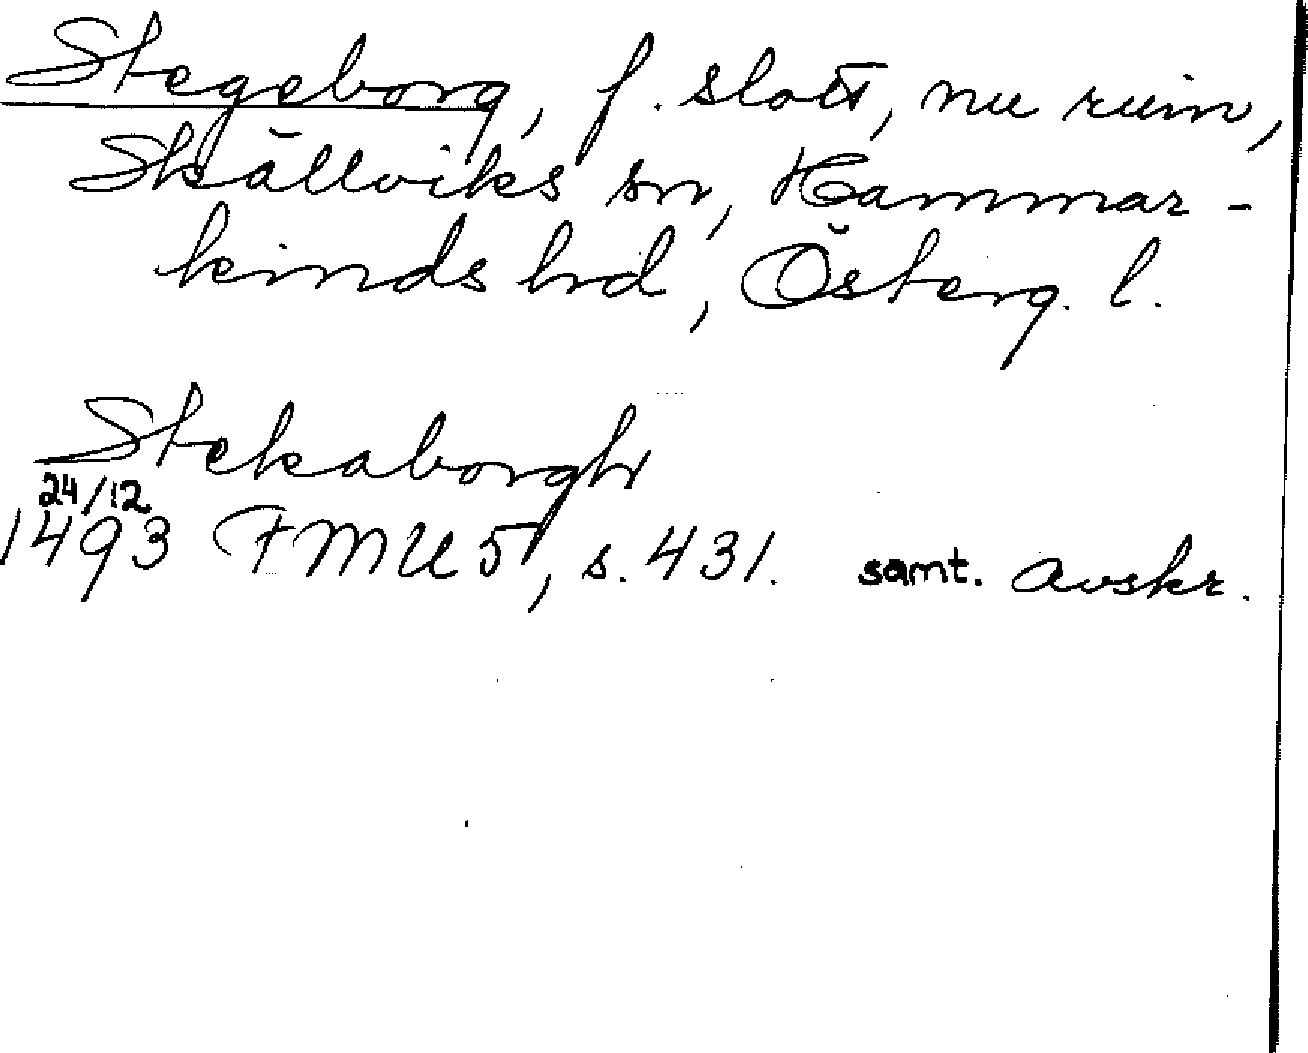 Stegeborg, f. slott, nu ruin,
Skällviks sn, Hammar-
kinds hd, Österg. l.
Stekaborgh
24/12
1493 FMU 5, s. 431. samt. avskr.